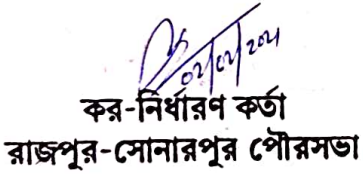 কর-নির্ধারণ কর্তা
রাজপুর-সোনারপুর পৌরসভা